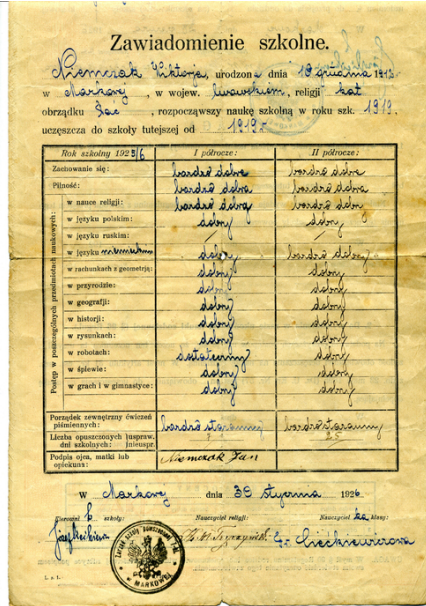 Zawiadomienie szkolne.
Niemczak Wiktorja, urodzona dnia 18 grudnia 1912
w Markowej, w wojew. lwowskiem, religji kat
obrządku łac, rozpocząwszy naukę szkolną w roku szk. 1919,
uczęszcza do szkoły tutejszej od 1919 r
Rok szkolny 1925/6 I półrocze: II półrocze:
Zachowanie się: bardzo dobre bardzo dobre
Pilność: bardzo dobra bardzo dobra
Postęp w poszczególnych przedmiotach naukowych:
w nauce religji: bardzo dobry bardzo dobry
w języku polskim: dobry dobry
w języku ruskim: / /
w języku niemieckim dobry bardzo dobry
w rachunkach z geometrją: dobry dobry
w przyrodzie: dobry dobry
w geografji: dobry dobry
w historji: dobry dobry
w rysunkach: dobry dobry
w robotach: dostateczny dobry
w śpiewie: dobry dobry
w grach i w gimnastyce: dobry dobry
Porządek zewnętrzny ćwiczeń
piśmiennych: bardzo staranny bardzo staranny
Liczba opuszczonych uspraw.
dni szkolnych: nieuspr. 25
Podpis ojca, matki lub
opiekuna: Niemczak Jan
W Markowej dnia 30 stycznia 1926
szkoły: Nauczyciel religji: Nauczycielka klasy:
MARKOWEJ